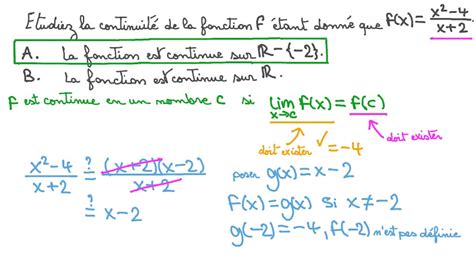 Etudiez la continuité de la fonction f étant donné que f(x) = x²-4 / x+2.
A. La fonction est continue sur ℝ-{-2}.
B. La fonction est continue sur ℝ.
f est continue en un nombre c si lim x→c f(x) = f(c)
doit exister ✓ = -4 doit exister
x²-4 / x+2 ≟ (x+2)(x-2) / x+2
≟ x-2
poser g(x) = x-2
f(x) = g(x) si x ≠ -2
g(-2) = -4, f(-2) n'est pas définie